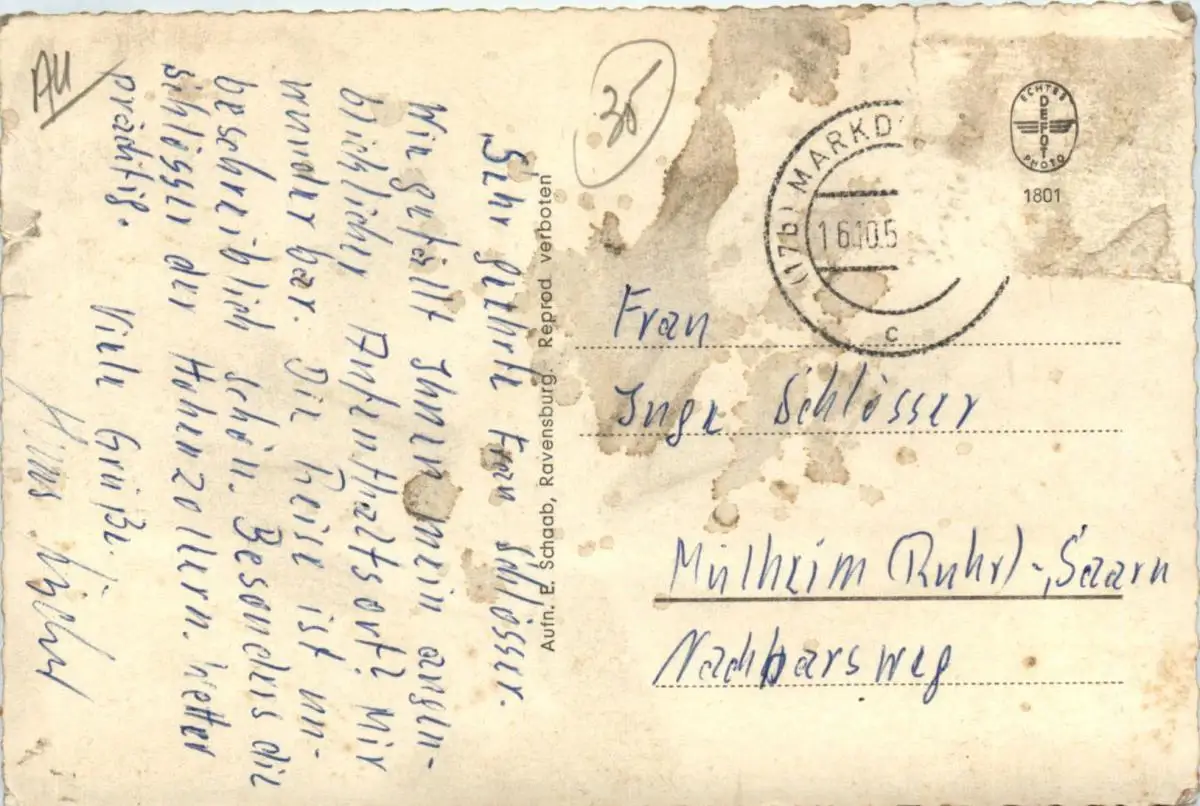 AU
35
Sehr geehrte Frau Schlösser.
Wie gefällt Ihnen mein augen-
blicklicher Aufenthaltsort? Mir
wunderbar. Die Reise ist un-
beschreiblich schön. Besonders die
Schlösser der Hohenzollern. Wetter
prächtig.
Viele Grüße.
Aufn. E. Schaab, Ravensburg. Reprod verboten
(17b) MARKD
16.10.5
c
ECHTES
DEFOT
PHOTO
1801
Frau
Inge Schlösser
Mülheim (Ruhr)-Saarn
Nachbarsweg